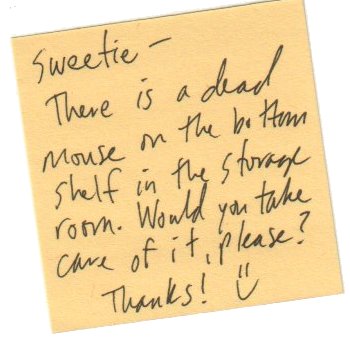 Sweetie –
There is a dead
mouse on the bottom
shelf in the storage
room. Would you take
care of it, please?
Thanks! :)